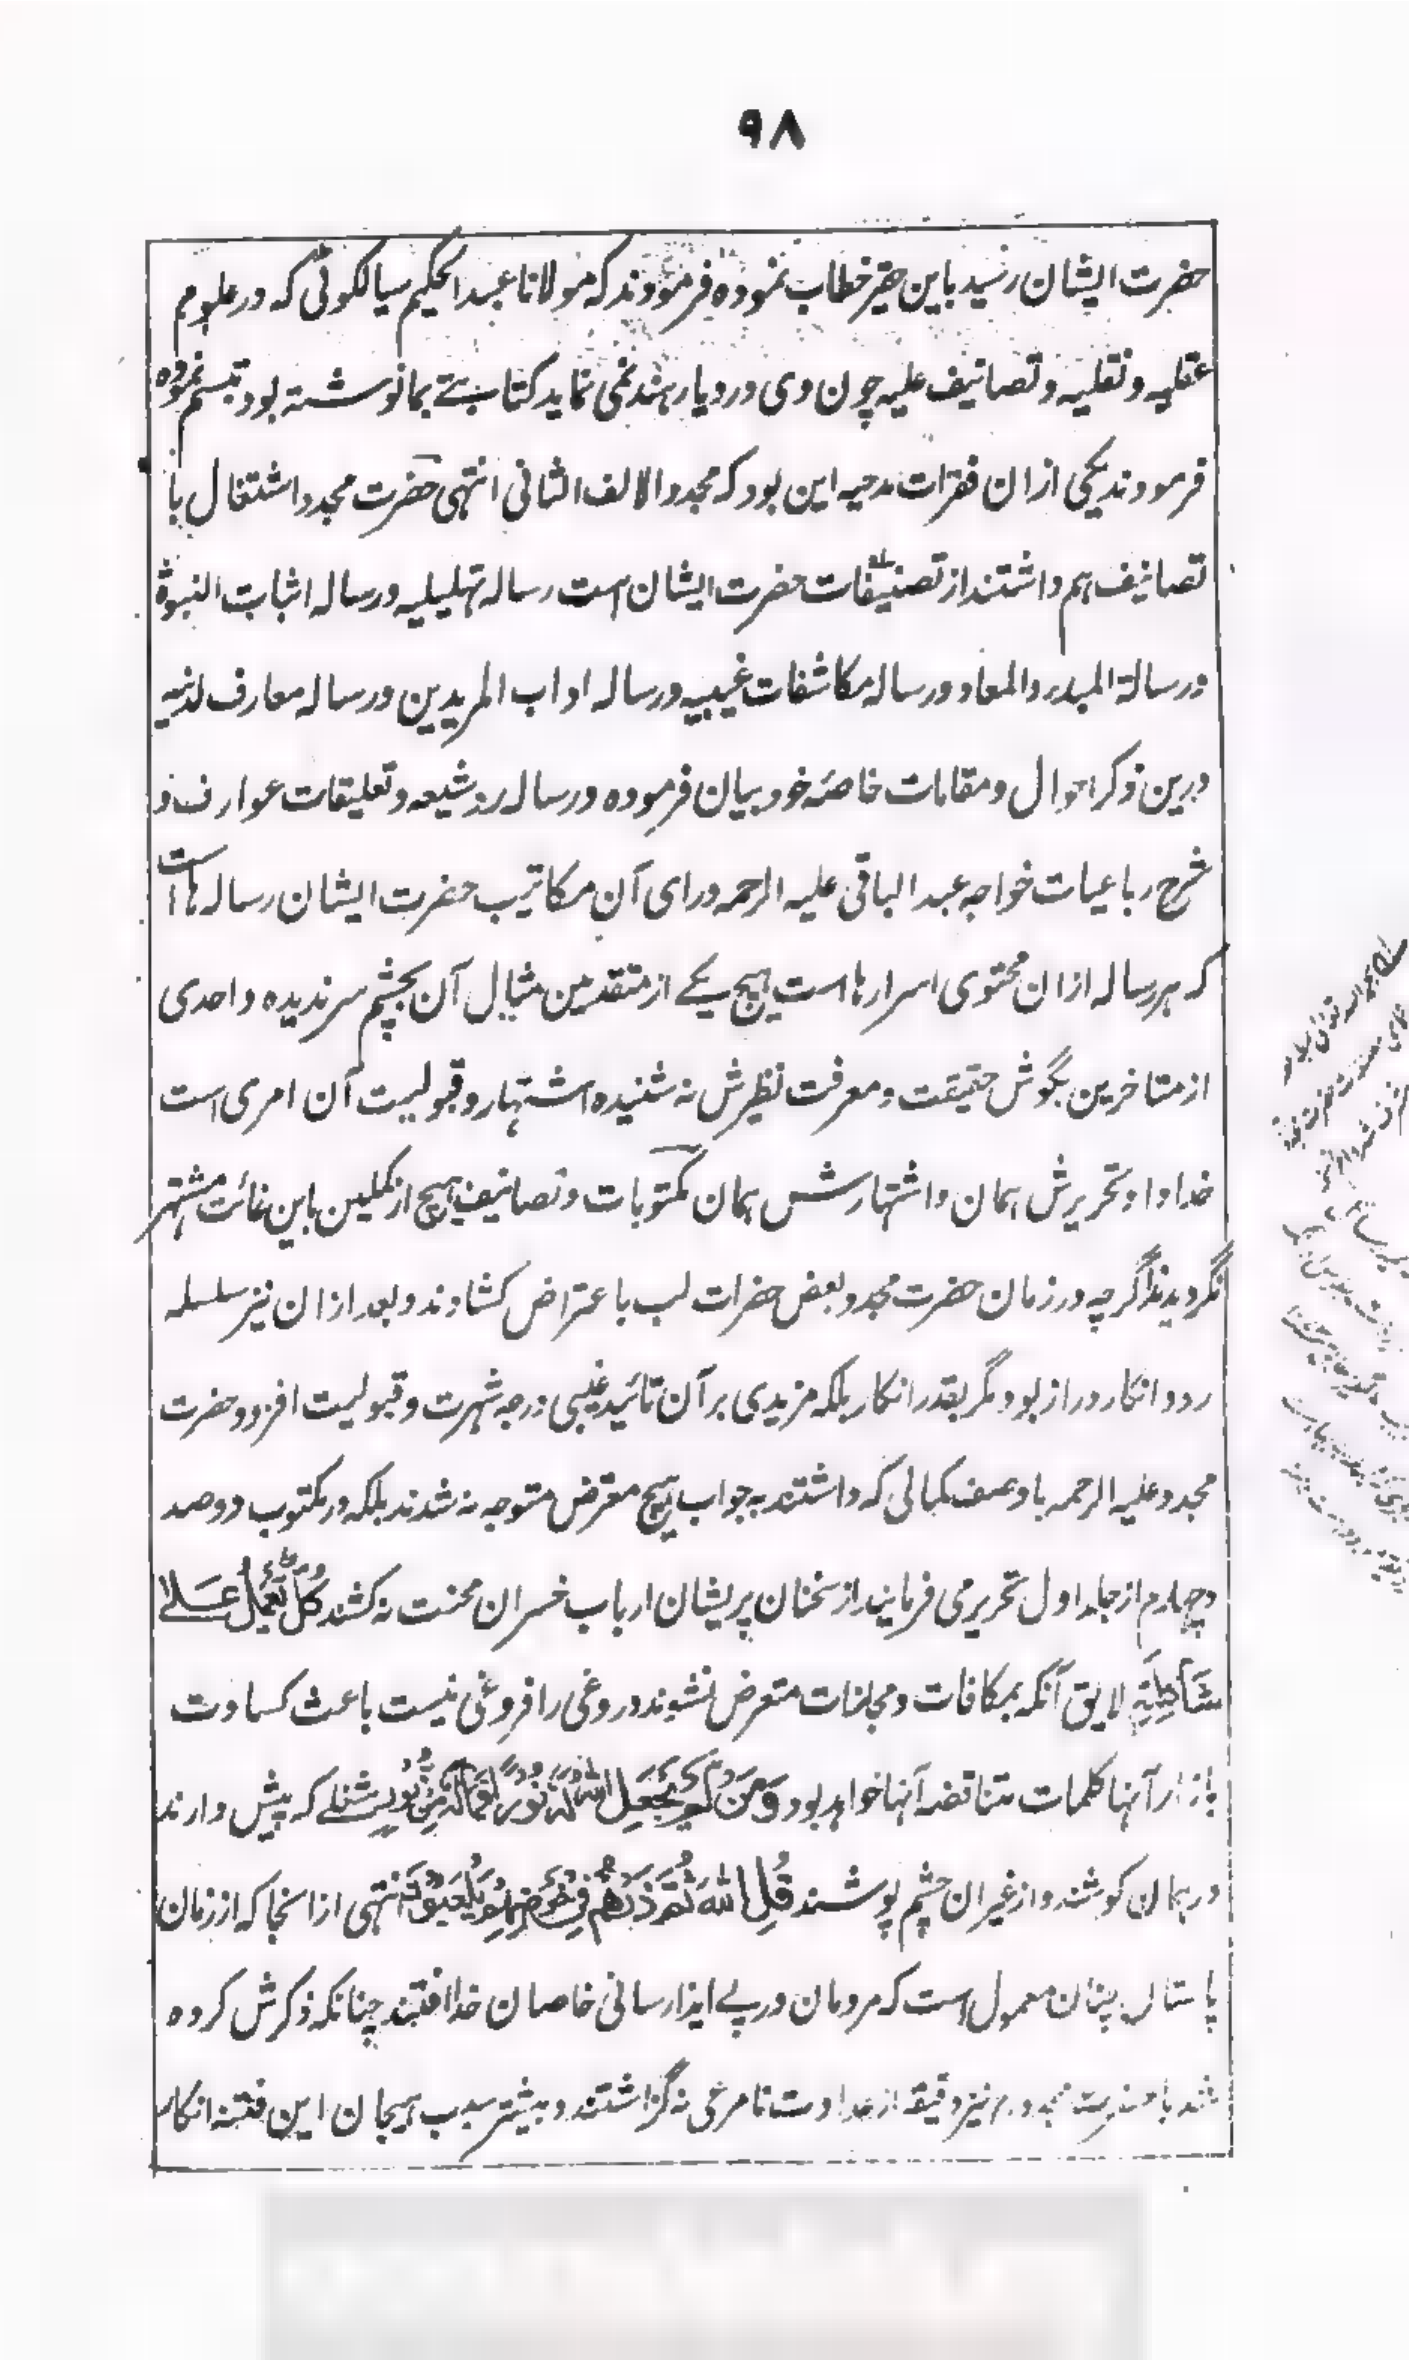 ٩٨
حضرت ایشان رسید باین حقیر خطاب نموده فرمودند که مولانا عبدالحکیم سیالکوٹی که در علوم
عقلیه و نقلیه و تصانیف علیه چون وی در دیار هند نمی نماید کتابتے بما نوشته بود تبسم نموده
فرمودند یکی ازان فقرات مدحیه این بود که مجدد الالف الثانی انتهی حضرت مجدد اشتغال با
تصانیف هم داشتند از تصنیفات حضرت ایشان است رساله تهلیلیه و رساله اثبات النبوة
و رسالة المبدء والمعاد و رساله مکاشفات غیبیه و رساله اداب المریدین و رساله معارف لدنیه
درین ذکر احوال و مقامات خاصهٔ خود بیان فرموده و رساله رد شیعه و تعلیقات عوارف و
شرح رباعیات خواجه عبدالباقی علیه الرحمه ورای آن مکاتیب حضرت ایشان رساله ها است
که هر رساله ازان محتوی اسرارها است هیچ یکے از متقدمین مثال آن بچشم سر ندیده و احدی
از متاخرین بگوش حقیقت و معرفت نظیرش نه شنیده اشتهار و قبولیت آن امری است
خداداد تحریرش همان و اشتهارش همان مکتوبات و تصانیف هیچ از مکملین باین غائت مشتهر
نگردیدند اگرچه در زمان حضرت مجدد بعض حضرات لب باعتراض کشادند و بعد ازان نیز سلسله
رد و انکار دراز بود مگر بقدر انکار بلکه مزیدی برآن تائید غیبی درجه شهرت و قبولیت افزود حضرت
مجدد علیه الرحمه باوصف کمالی که داشتند به جواب هیچ معترض متوجه نه شدند بلکه در مکتوب دو صد
و چهارم از جلد اول تحریر می فرمایند از سخنان پریشان ارباب خسران محنت نه کشند کُلٌّ یَّعْمَلُ عَلٰے
شَاکِلَتِهٖ لایق آنکه بمکافات و مجازات متعرض نشوند دروغی را فروغی نیست باعث کسادت
بازار آنها کلمات متناقضه آنها خواهد بود وَمَنْ لَّمْ یَجْعَلِ اللّٰهُ لَهٗ نُوْرًا فَمَا لَهٗ مِنْ نُّوْرٍ شغلے که پیش دارند
در همان کوشند و از غیر ان چشم پوشند قُلِ اللّٰهُ ثُمَّ ذَرْهُمْ فِیْ خَوْضِهِمْ یَلْعَبُوْنَ انتهی ازانجا که از زمان
باستان چنان معمول است که مردمان در پے ایذا رسانی خاصان خدا افتند چنانکه ذکرش کرده
شد با حضرت مجدد هم نیز دقیقه از عداوت نامرعی نه گزاشتند و بیشتر سبب هیجان این فتنه انکار